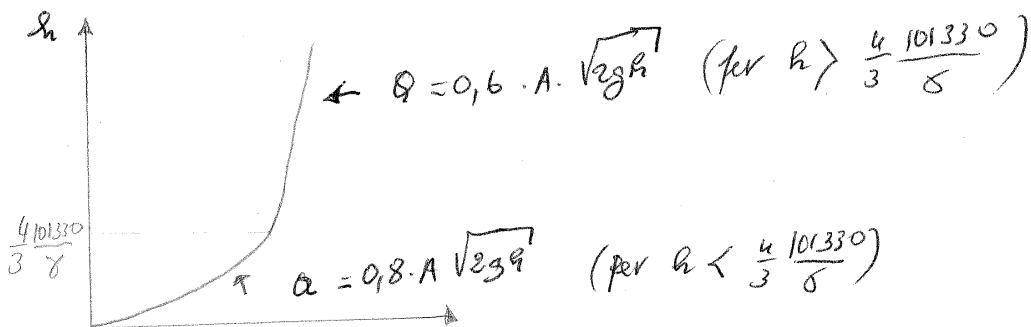 h
← Q = 0,6 · A · √2gh (per h > 4/3 101330/γ)
4/3 101330/γ
↖ Q = 0,8 · A √2gh (per h < 4/3 101330/γ)